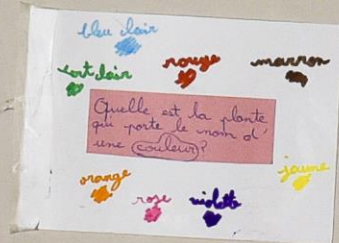 bleu clair
vert clair
rouge
marron
Quelle est la plante
qui porte le nom d'
une couleur?
orange
rose
violette
jaune